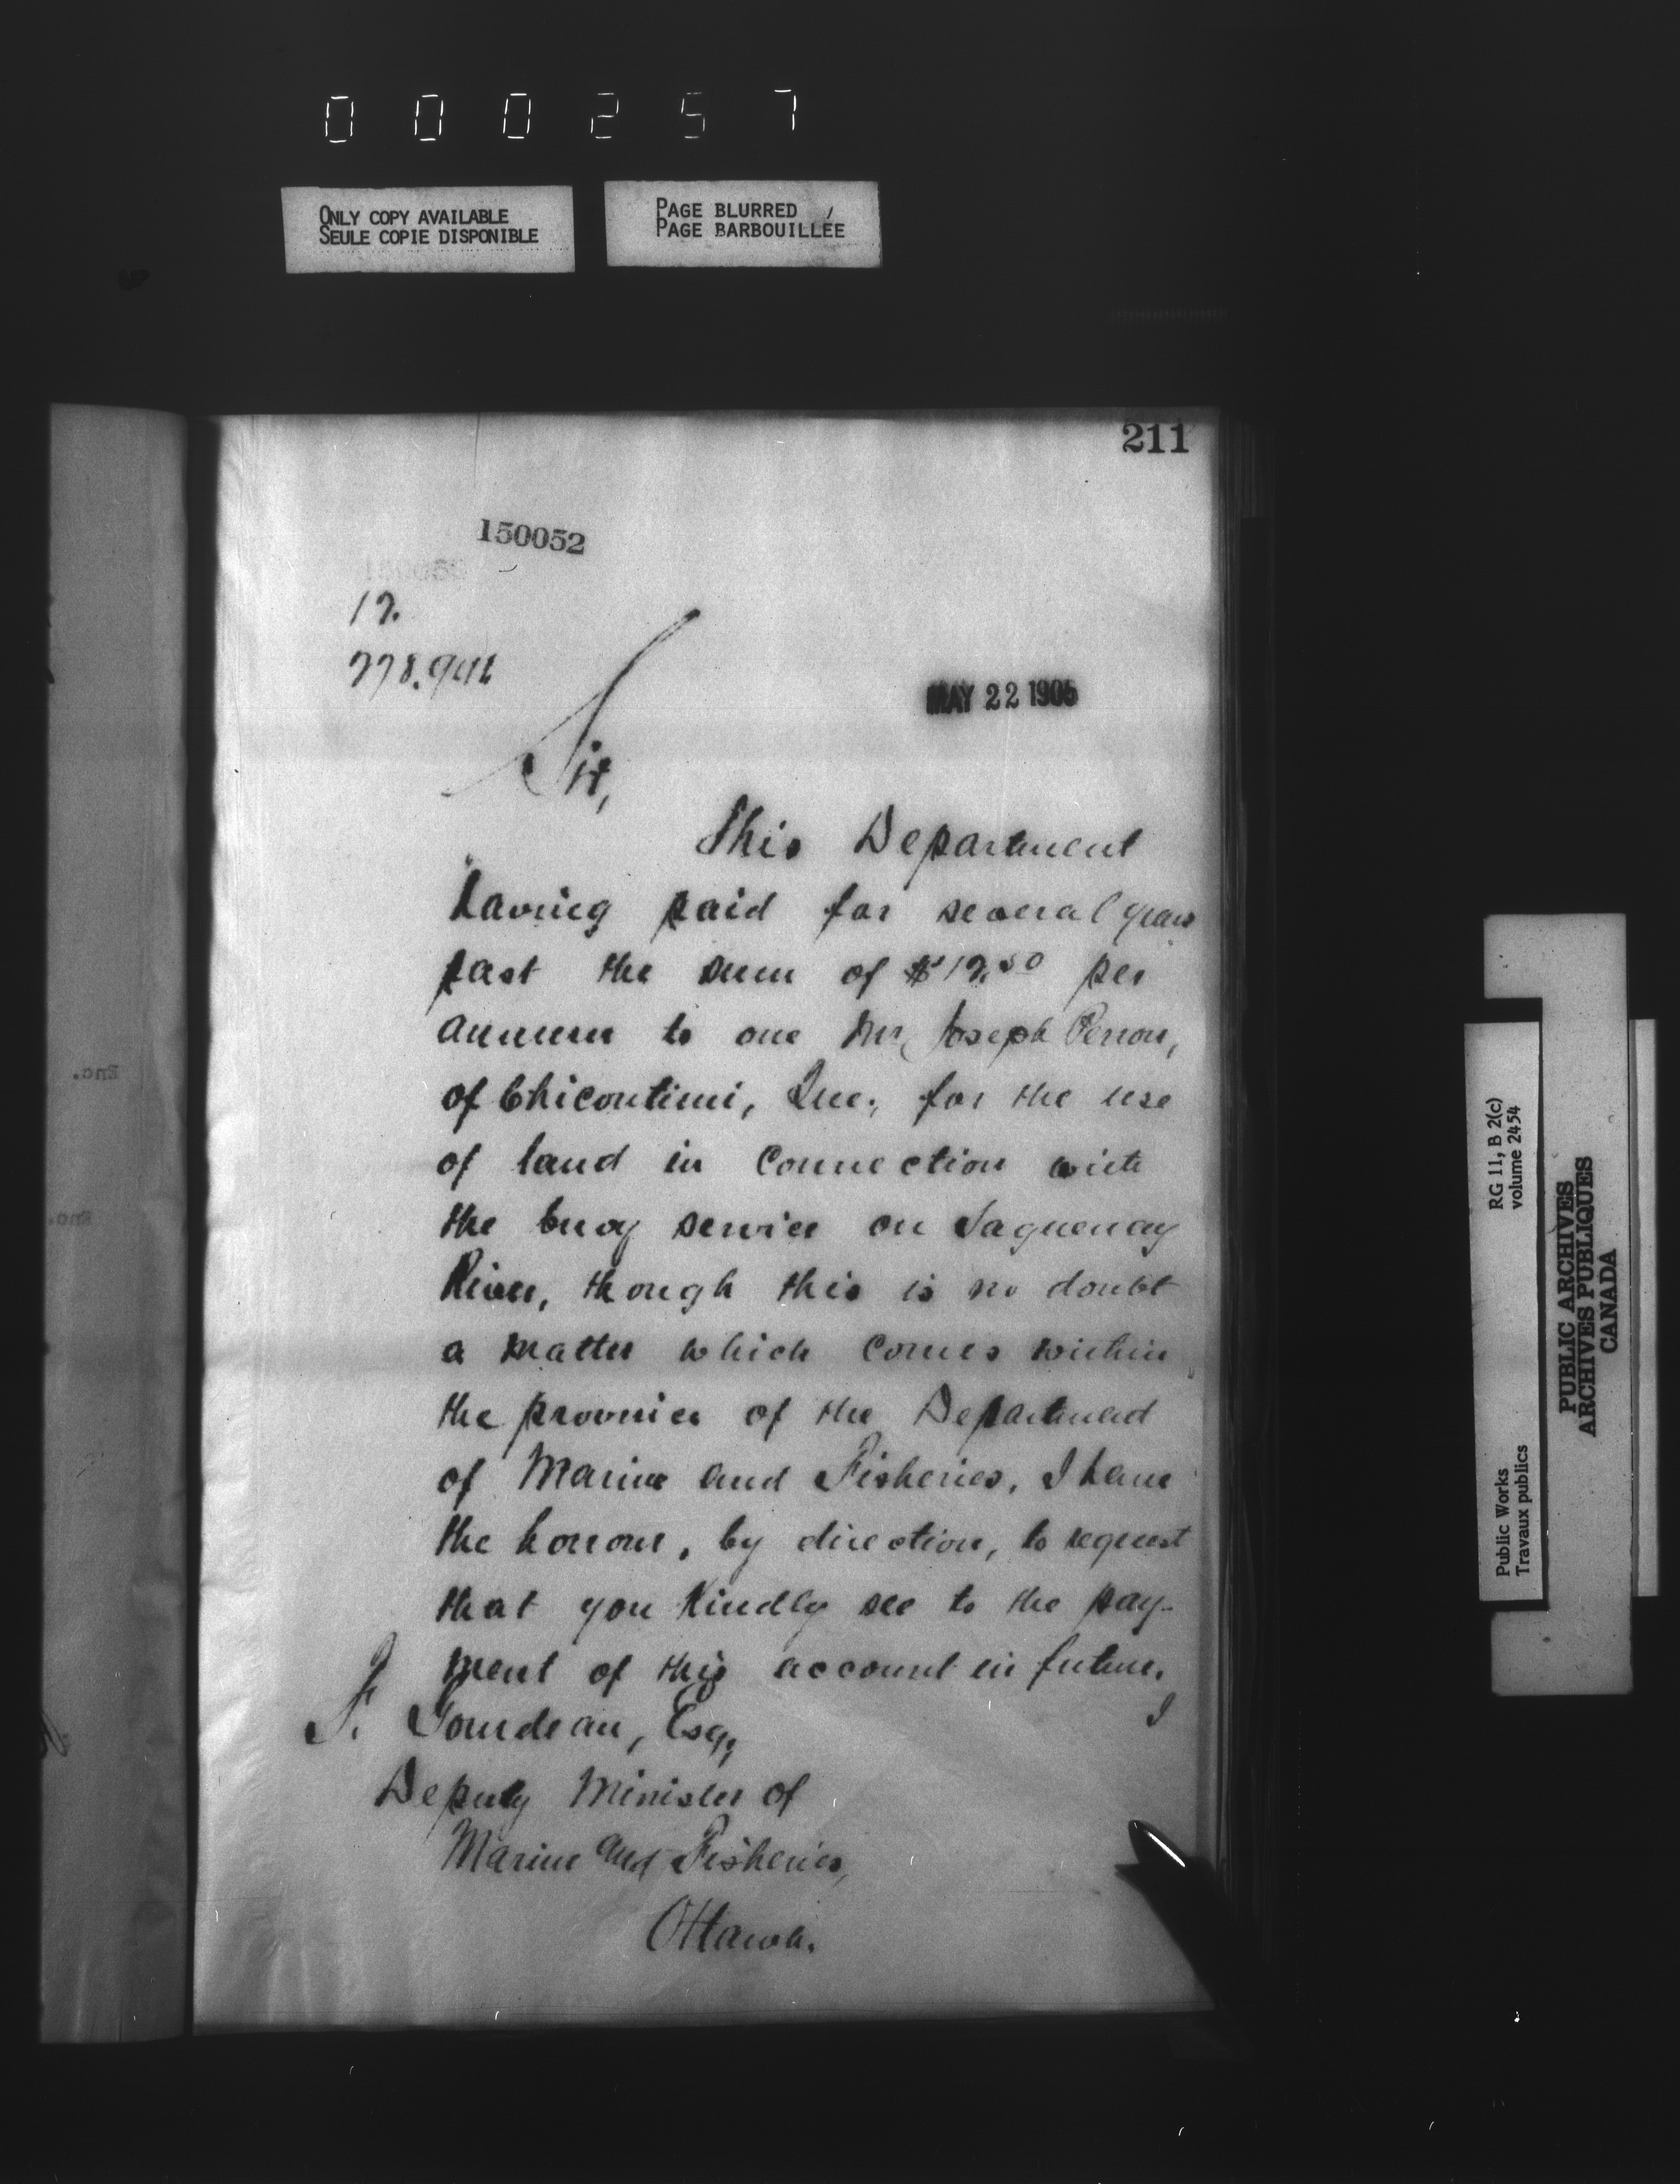 000257
ONLY COPY AVAILABLE
SEULE COPIE DISPONIBLE
PAGE BLURRED
PAGE BARBOUILLÉE
211
150052
MAY 22 1905
Sir,
This Department
having paid for several years
past the sum of $12.50 per
annum to one Mr. Joseph Perron,
of Chicoutimi, Que., for the use
of land in connection with
the buoy service on Saguenay
River, though this is no doubt
a matter which comes within
the province of the Department
of Marine and Fisheries, I have
the honour, by direction, to request
that you kindly see to the pay-
ment of this account in future.
I
F. Gourdeau, Esq.,
Deputy Minister of
Marine and Fisheries,
Ottawa.
Enc.
Enc.
RG 11, B 2(c)
volume 2454
Public Works
Travaux publics
PUBLIC ARCHIVES
ARCHIVES PUBLIQUES
CANADA